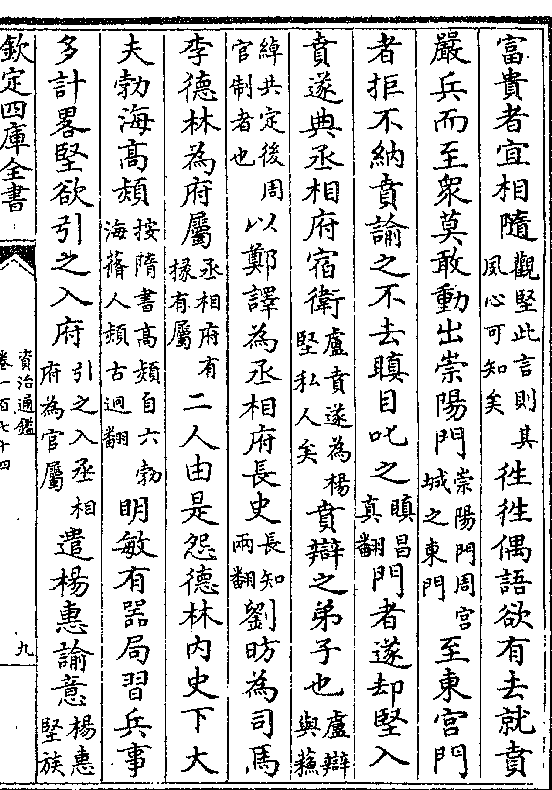 富貴者宜相隨觀堅此言則其風心可知矣徃徃偶語欲有去就賁
嚴兵而至衆莫敢動出崇陽門崇陽門周宮城之東門至東宮門
者拒不納賁諭之不去瞋目叱之瞋昌真翻門者遂却堅入
賁遂典丞相府宿衛盧賁遂為楊堅私人矣賁辯之弟子也盧辯與蘇
綽共定後周官制者也以鄭譯為丞相府長史長知兩翻劉昉為司馬
李德林為府屬丞相府有掾有屬二人由是怨德林内史下大
夫勃海高熲按隋書高熲自六勃海蓨人熲古迥翻明敏有器局習兵事
多計畧堅欲引之入府引之入丞相府為官屬遣楊惠諭意楊惠堅族
欽定四庫全書
資治通鑑
卷一百七十四
九